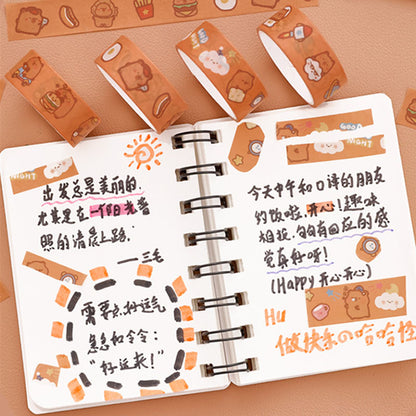 出发总是美丽的.
尤其是在一个阳光普
照的清晨上路.
——三毛
需要点好运气
急急如令令:
"好运来!"
NIGHT
GOOD
今天中午和口译的朋友
约饭啦,开心!趣味
相投,句句有回应的感
觉真好呀!
(Happy 开心开心)
Hu
做快乐の哈哈怪